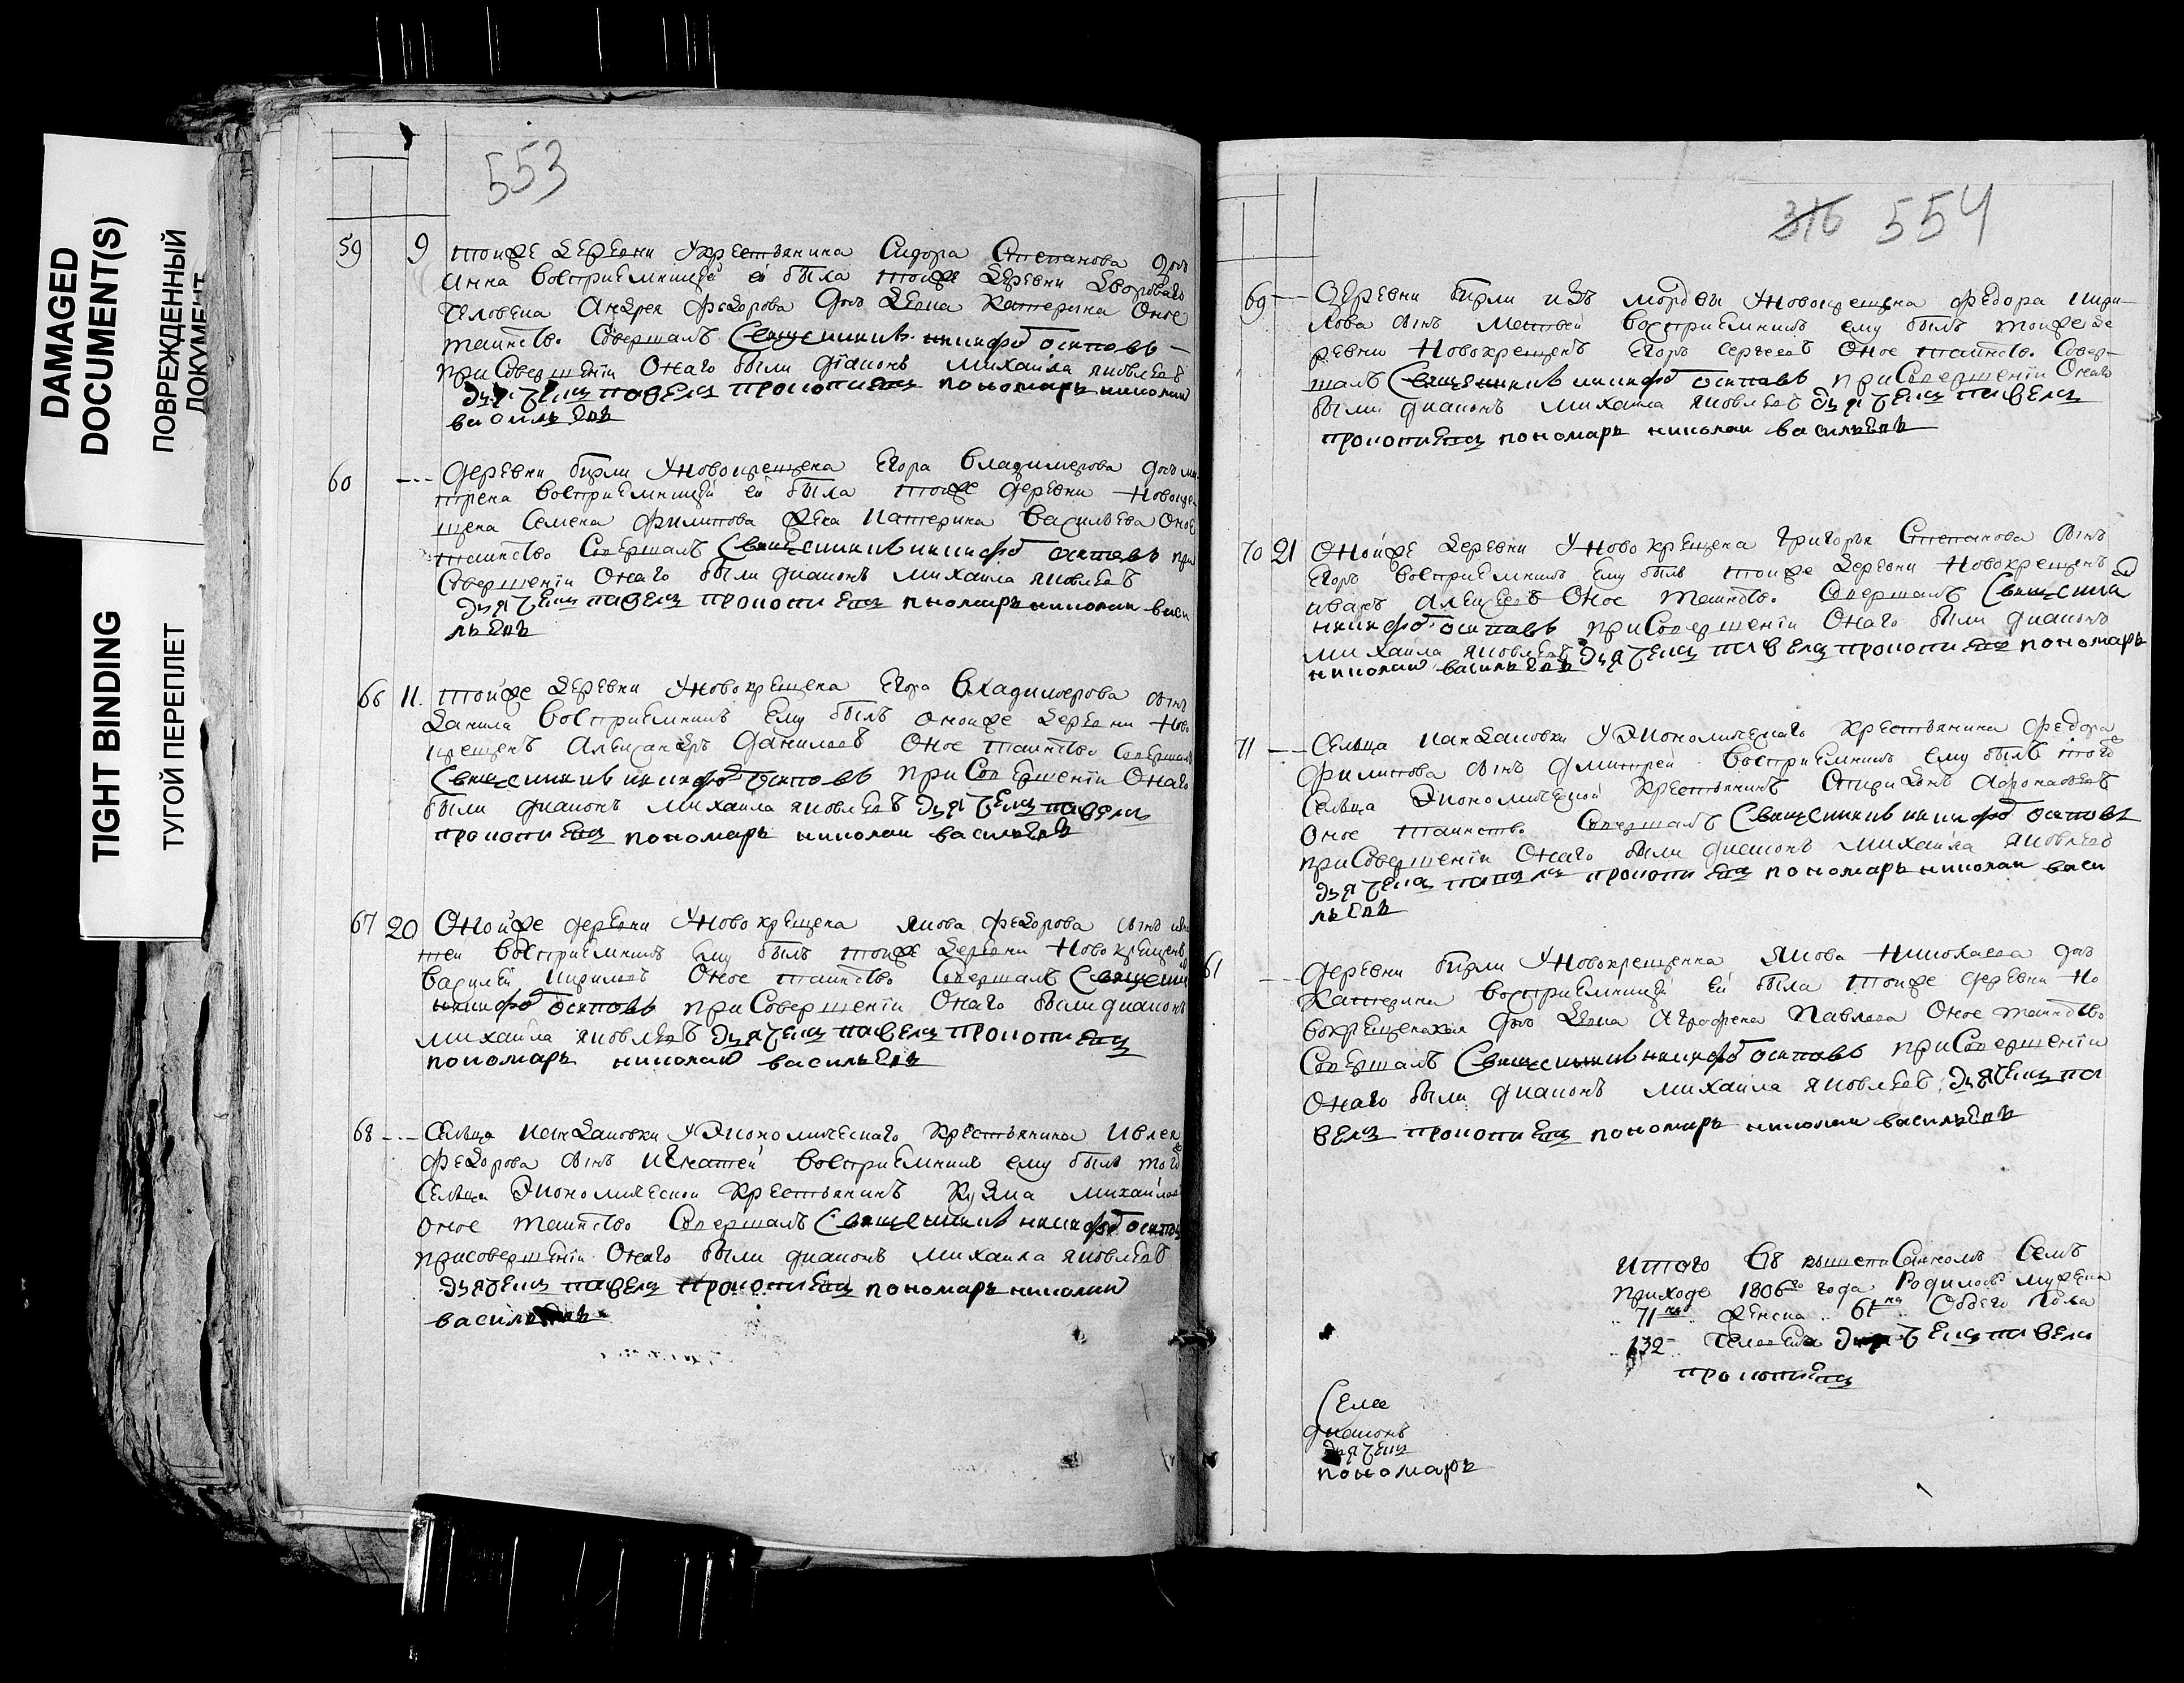 DAMAGED
DOCUMENT(S)
ПОВРЕЖДЕННЫЙ
ДОКУМЕНТ
TIGHT BINDING
ТУГОЙ ПЕРЕПЛЕТ
553
59 9 тойже деревни у крестьянина Сидора Степанова дочь
Анна восприемницей ей была тойже деревни дворового
человека Андрея Федорова дочь девка Катерина Оное
таинство Совершалъ Священникъ никифоръ осиповъ
при Совершенiи Онаго были дiаконъ Михаила яковлевъ
дьячекъ павелъ прокопиевъ пономарь николаи
васильевъ
60 --- Деревни бирли у Новокрещена Егора Владимерова дочь ма
трена восприемницей ей была тойже деревни Новокре
щена Семена Филипова жена Катерина Васильева Оное
таинство Совершалъ Священникъ никифоръ осиповъ при
Совершенiи Онаго были диаконъ михаила яковлевъ
дьячекъ павелъ прокопиевъ пономарь николаи васи
льевъ
66 11. тойже деревни у Новокрещена Егора Владимерова сынъ
Данила восприемникъ Ему былъ онойже деревни Ново
крещенъ Александръ Данилевъ Оное таинство Совершалъ
Священникъ никифоръ осиповъ при Совершенiи Онаго
были диаконъ Михаила яковлевъ дьячекъ павелъ
прокопиевъ пономарь николаи васильевъ
67 20 Онойже деревни у Новокрещена якова Федорова сынъ
восприемникъ Ему былъ тойже деревни Новокрещенъ
Василей Кирилевъ Оное таинство Совершалъ Священникъ
никифоръ осиповъ при Совершенiи Онаго были диаконъ
михаила яковлевъ дьячекъ павелъ прокопиевъ
пономарь николаи васильевъ
68 --- Сельца у Экономическаго крестьянина
Федорова сынъ Игнатей восприемникъ ему былъ тогоже
Сельца Экономической крестьянинъ Кузма Михайлов
оное таинство Совершалъ Священникъ никифоръ осиповъ
присовершенiи Онаго были диаконъ михаила яковлевъ
дьячекъ павелъ прокопиевъ пономарь николаи
васильевъ
316 554
69 --- Деревни бирли изъ мордвы у Новокрещена Федора Кири
лова сынъ Матвей восприемникъ ему былъ тойже де
ревни Новокрещенъ Егоръ Сергеевъ Оное таинство Совер
шалъ Священникъ никифоръ осиповъ при Совершенiи Онаго
были диаконъ Михаила яковлевъ дьячекъ павелъ
прокопиевъ пономарь николаи васильевъ
70 21 Онойже деревни у Новокрещена Григорья Степанова сынъ
Егоръ восприемникъ Ему былъ тойже деревни Новокрещенъ
иванъ Алексеевъ Оное таинство Совершалъ Священникъ
никифоръ осиповъ при Совершенiи Онаго были диаконъ
михаила яковлевъ дьячекъ павелъ прокопиевъ пономарь
николаи васильевъ
71 --- Сельца у Экономическаго крестьянина Федора
Филипова сынъ Дмитрей восприемникъ ему былъ тогоже
Сельца Экономической крестьянинъ Спиридонъ Афонасьевъ
Оное таинство Совершалъ Священникъ никифоръ осиповъ
при Совершенiи Онаго были диаконъ Михаила яковлевъ
дьячекъ павелъ прокопиевъ пономарь николаи васи
льевъ
61 --- Деревни бирли у Новокрещенна якова Николаева дочь
Катерина восприемницей ей была тойже деревни Но
вокрещена дочь девка Аграфена Павлова Оное таинство
Совершалъ Священникъ никифоръ осиповъ при Совершенiи
Онаго были диаконъ михаила яковлевъ дьячекъ па
велъ прокопиевъ пономарь николаи васильевъ
Итого въ вышеписанномъ Семъ
приходе 1806го года Родилось мужеска
71 на женска 61 на Обоего пола
132 человека дьячекъ павелъ
прокопиевъ
Села
диаконъ
дьячекъ
пономарь